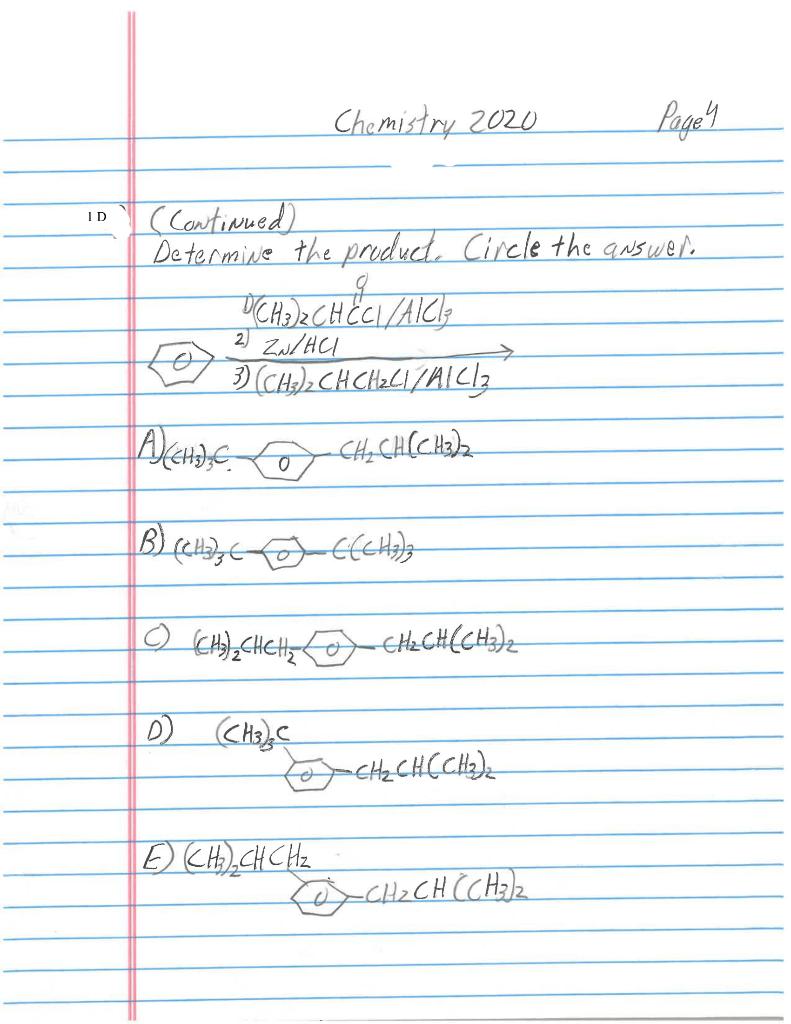 Chemistry 2020 Page 4
1 D (Continued)
Determine the product. Circle the answer.
O
1) (CH3)2CHCCl/AlCl3
2) Zn/HCl
3) (CH3)2CHCH2Cl/AlCl3
A) (CH3)3C CH2CH(CH3)2
B) (CH3)3C C(CH3)3
C) (CH3)2CHCH2 CH2CH(CH3)2
D) (CH3)3C
CH2CH(CH3)2
E) (CH3)2CHCH2
CH2CH(CH3)2